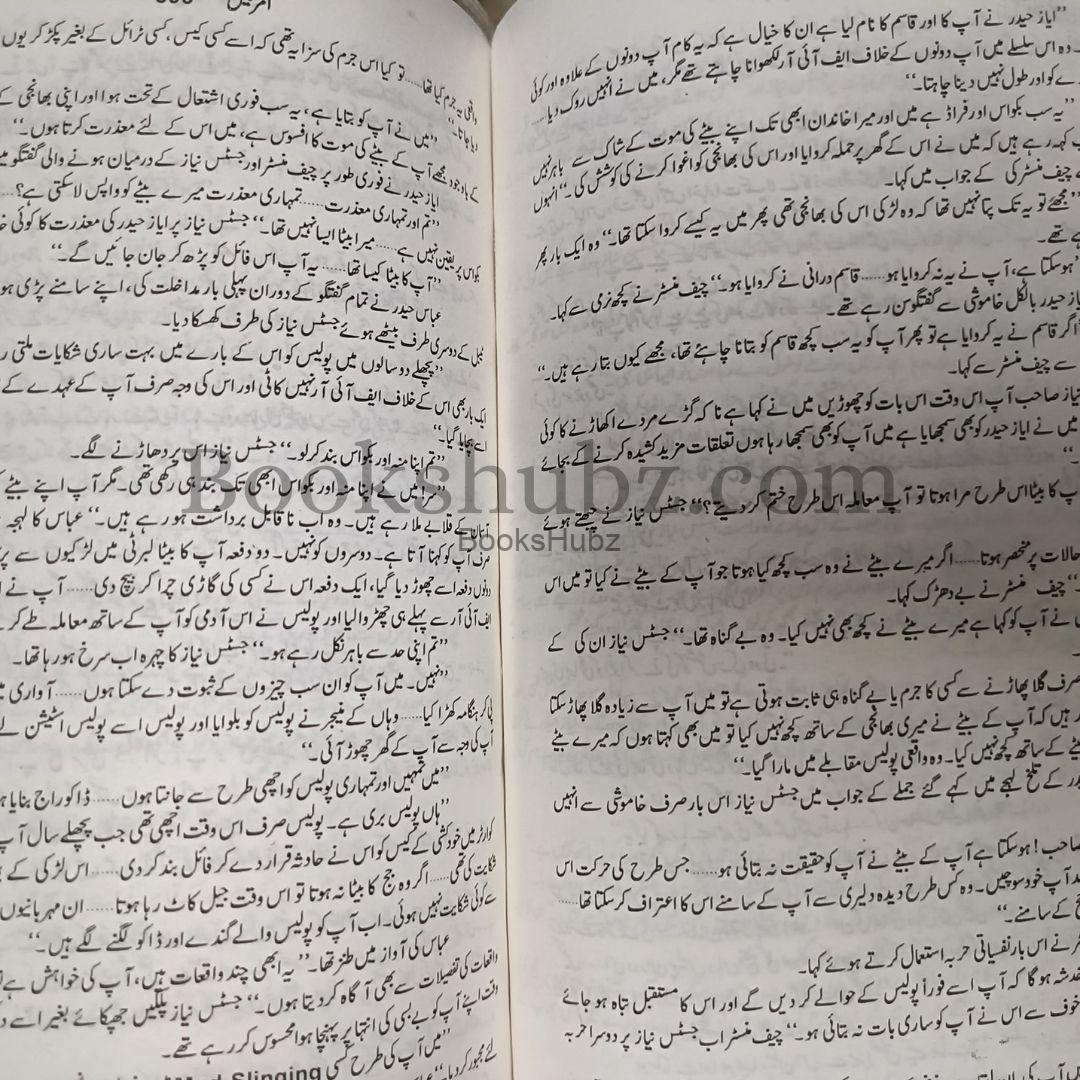 ’’ایاز حیدر نے آپ کا اور قاسم کا نام لیا ہے ان کا خیال ہے کہ یہ کام آپ دونوں کے علاوہ اور کوئی
۔ وہ اس سلسلے میں آپ دونوں کے خلاف ایف آئی آر لکھوانا چاہتے تھے مگر، میں نے انہیں روک دیا......
ے کو اور طول نہیں دینا چاہتا۔‘‘
’’یہ سب بکواس اور فراڈ ہے میں اور میرا خاندان ابھی تک اپنے بیٹے کی موت کے شاک سے باہر نہیں
پ کہہ رہے ہیں کہ میں نے اس کے گھر پر حملہ کروایا اور اس کی بھانجی کو اغوا کرنے کی کوشش کی۔‘‘ انہوں
ے چیف منسٹر کی کے جواب میں کہا۔
’’مجھے تو یہ تک پتا نہیں تھا کہ وہ لڑکی اس کی بھانجی تھی پھر میں یہ کیسے کروا سکتا تھا۔‘‘ وہ ایک بار پھر
ہے تھے۔
’ہو سکتا ہے، آپ نے یہ نہ کروایا ہو...... قاسم درانی نے کروایا ہو۔‘‘ چیف منسٹر نے کچھ نرمی سے کہا۔
یاز حیدر بالکل خاموشی سے گفتگو سن رہے تھے۔
اگر قاسم نے یہ کروایا ہے تو پھر آپ کو یہ سب کچھ قاسم کو بتانا چاہئے تھا، مجھے کیوں بتا رہے ہیں۔‘‘
سے چیف منسٹر سے کہا۔
نیاز صاحب آپ اس وقت اس بات کو چھوڑیں میں نے کہا ہے نا کہ گڑے مردے اکھاڑنے کا کوئی
میں نے ایاز حیدر کو بھی سمجھایا ہے میں آپ کو بھی سمجھا رہا ہوں تعلقات مزید کشیدہ کرنے کے بجائے
۔‘‘
پ کا بیٹا اس طرح مرا ہوتا تو آپ معاملہ اس طرح ختم کر دیتے؟‘‘ جسٹس نیاز نے چبھتے ہوئے
حالات پر منحصر ہوتا...... اگر میرے بیٹے نے وہ سب کچھ کیا ہوتا جو آپ کے بیٹے نے کیا تو میں اس
۔‘‘ چیف منسٹر نے بے دھڑک کہا۔
ں نے آپ کو کہا ہے میرے بیٹے نے کچھ بھی نہیں کیا۔ وہ بے گناہ تھا۔‘‘ جسٹس نیاز ان کی کے
صرف گلا پھاڑنے سے کسی کا جرم یا بے گناہ ہی ثابت ہوتی ہے تو میں آپ سے زیادہ گلا پھاڑ سکتا
ر ہیں کہ آپ کے بیٹے نے میری بھانجی کے ساتھ کچھ نہیں کیا تو میں بھی کہتا ہوں کہ میرے بیٹے
بیٹے کے ساتھ کچھ نہیں کیا۔ وہ واقعی پولیس مقابلے میں مارا گیا۔‘‘
در کے تلخ لہجے میں کہے گئے جملے کے جواب میں جسٹس نیاز اس بار صرف خاموشی سے انہیں
صاحب! ہو سکتا ہے آپ کے بیٹے نے آپ کو حقیقت نہ بتائی ہو...... جس طرح کی حرکت اس
ند آپ خود سوچیں۔ وہ کس طرح دیدہ دلیری سے آپ کے سامنے اس کا اعتراف کر سکتا تھا......
ج کے سامنے۔‘‘
ر نے اس بار نفسیاتی حربہ استعمال کرتے ہوئے کہا۔
خدشہ ہو گا کہ آپ اسے فوراً پولیس کے حوالے کر دیں گے اور اس کا مستقبل تباہ ہو جائے
خوف سے اس نے آپ کو ساری بات نہ بتائی ہو۔‘‘ چیف منسٹر اب جسٹس نیاز پر دوسرا حربہ
واقعی یہ جرم کیا تھا...... تو کیا اس جرم کی سزا یہ تھی کہ اسے کسی کیس، کسی ٹرائل کے بغیر پکڑ کر یوں
دیا جاتا۔‘‘
’’میں نے آپ کو بتایا ہے، یہ سب فوری اشتعال کے تحت ہوا اور اپنی بھانجی کے
کے باوجود مجھے آپ کے بیٹے کی موت کا افسوس ہے، میں اس کے لئے معذرت کرتا ہوں۔‘‘
ایاز حیدر نے فوری طور پر چیف منسٹر اور جسٹس نیاز کے درمیان ہونے والی گفتگو میں
’’تم اور تمہاری معذرت...... تمہاری معذرت میرے بیٹے کو واپس لا سکتی ہے؟......
بکواس پر یقین نہیں ہے...... میرا بیٹا ایسا نہیں تھا۔‘‘ جسٹس نیاز پر ایاز حیدر کی معذرت کا کوئی
’’آپ کا بیٹا کیسا تھا...... یہ آپ اس فائل کو پڑھ کر جان جائیں گے۔‘‘
عباس حیدر نے تمام گفتگو کے دوران پہلی بار مداخلت کی، اپنے سامنے پڑی ہو
ٹیبل کے دوسری طرف بیٹھے ہوئے جسٹس نیاز کی طرف کھسکا دیا۔
’’پچھلے دو سالوں میں پولیس کو اس کے بارے میں بہت ساری شکایات ملتی ر
ایک بار بھی اس کے خلاف ایف آئی آر نہیں کاٹی اور اس کی وجہ صرف آپ کے عہدے کے
اسے بچایا گیا۔‘‘
’’تم اپنا منہ اور بکواس بند کر لو۔‘‘ جسٹس نیاز اس پر دھاڑنے لگے۔
’’سر! میں نے اپنا منہ اور بکواس ابھی تک بند ہی رکھی تھی۔ مگر آپ اپنے بیٹے
آسمان کے قلابے ملا رہے ہیں۔ وہ اب ناقابل برداشت ہو رہے ہیں۔‘‘ عباس کا لہجہ
صرف آپ کو کہنا آتا ہے۔ دوسروں کو نہیں۔ دو دفعہ آپ کا بیٹا لبرٹی میں لڑکیوں سے
دونوں دفعہ اسے چھوڑ دیا گیا، ایک دفعہ اس نے کسی کی گاڑی چرا کر بیچ دی...... آپ نے
ایف آئی آر سے پہلے ہی چھڑوا لیا اور پولیس نے اس آدمی کو آپ کے ساتھ معاملہ طے کر
’’تم اپنی حد سے باہر نکل رہے ہو۔‘‘ جسٹس نیاز کا چہرہ اب سرخ ہو رہا تھا۔
’’نہیں۔ میں آپ کو ان سب چیزوں کے ثبوت دے سکتا ہوں...... آواری میں
پی کر ہنگامہ کھڑا کیا...... وہاں کے منیجر نے پولیس کو بلوایا اور پولیس اسے پولیس اسٹیشن لے
آپ کی وجہ سے آپ کے گھر چھوڑ آئی۔‘‘
’’میں تمہیں اور تمہاری پولیس کو اچھی طرح سے جانتا ہوں...... ڈاکو راج بنایا
’’ہاں پولیس بری ہے۔ پولیس صرف اس وقت اچھی تھی جب پچھلے سال آپ
کوارٹر میں خودکشی کے کیس کو اس نے حادثہ قرار دے کر فائل بند کر دی...... اس لڑکی کے
شکایت کی تھی...... اگر وہ جج کا بیٹا نہ ہوتا تو اس وقت جیل کاٹ رہا ہوتا...... ان مہربانیوں
سے کوئی شکایت نہیں ہوئی۔ اب آپ کو پولیس والے گندے اور ڈاکو لگنے لگے ہیں۔‘‘
عباس کی آواز میں طنز تھا۔’’ یہ ابھی چند واقعات ہیں، آپ کی خواہش ہے
واقعات کی تفصیلات سے بھی آگاہ کر دیتا ہوں۔‘‘ جسٹس نیاز پلکیں جھپکائے بغیر اسے
وقت اپنے آپ کو بے بسی کی انتہا پر پہنچا ہوا محسوس کر رہے تھے۔
’’میں آپ کی طرح کسی Slinging
لئے مجبور کر دیا۔‘‘
Bookshubz.com
BooksHubz